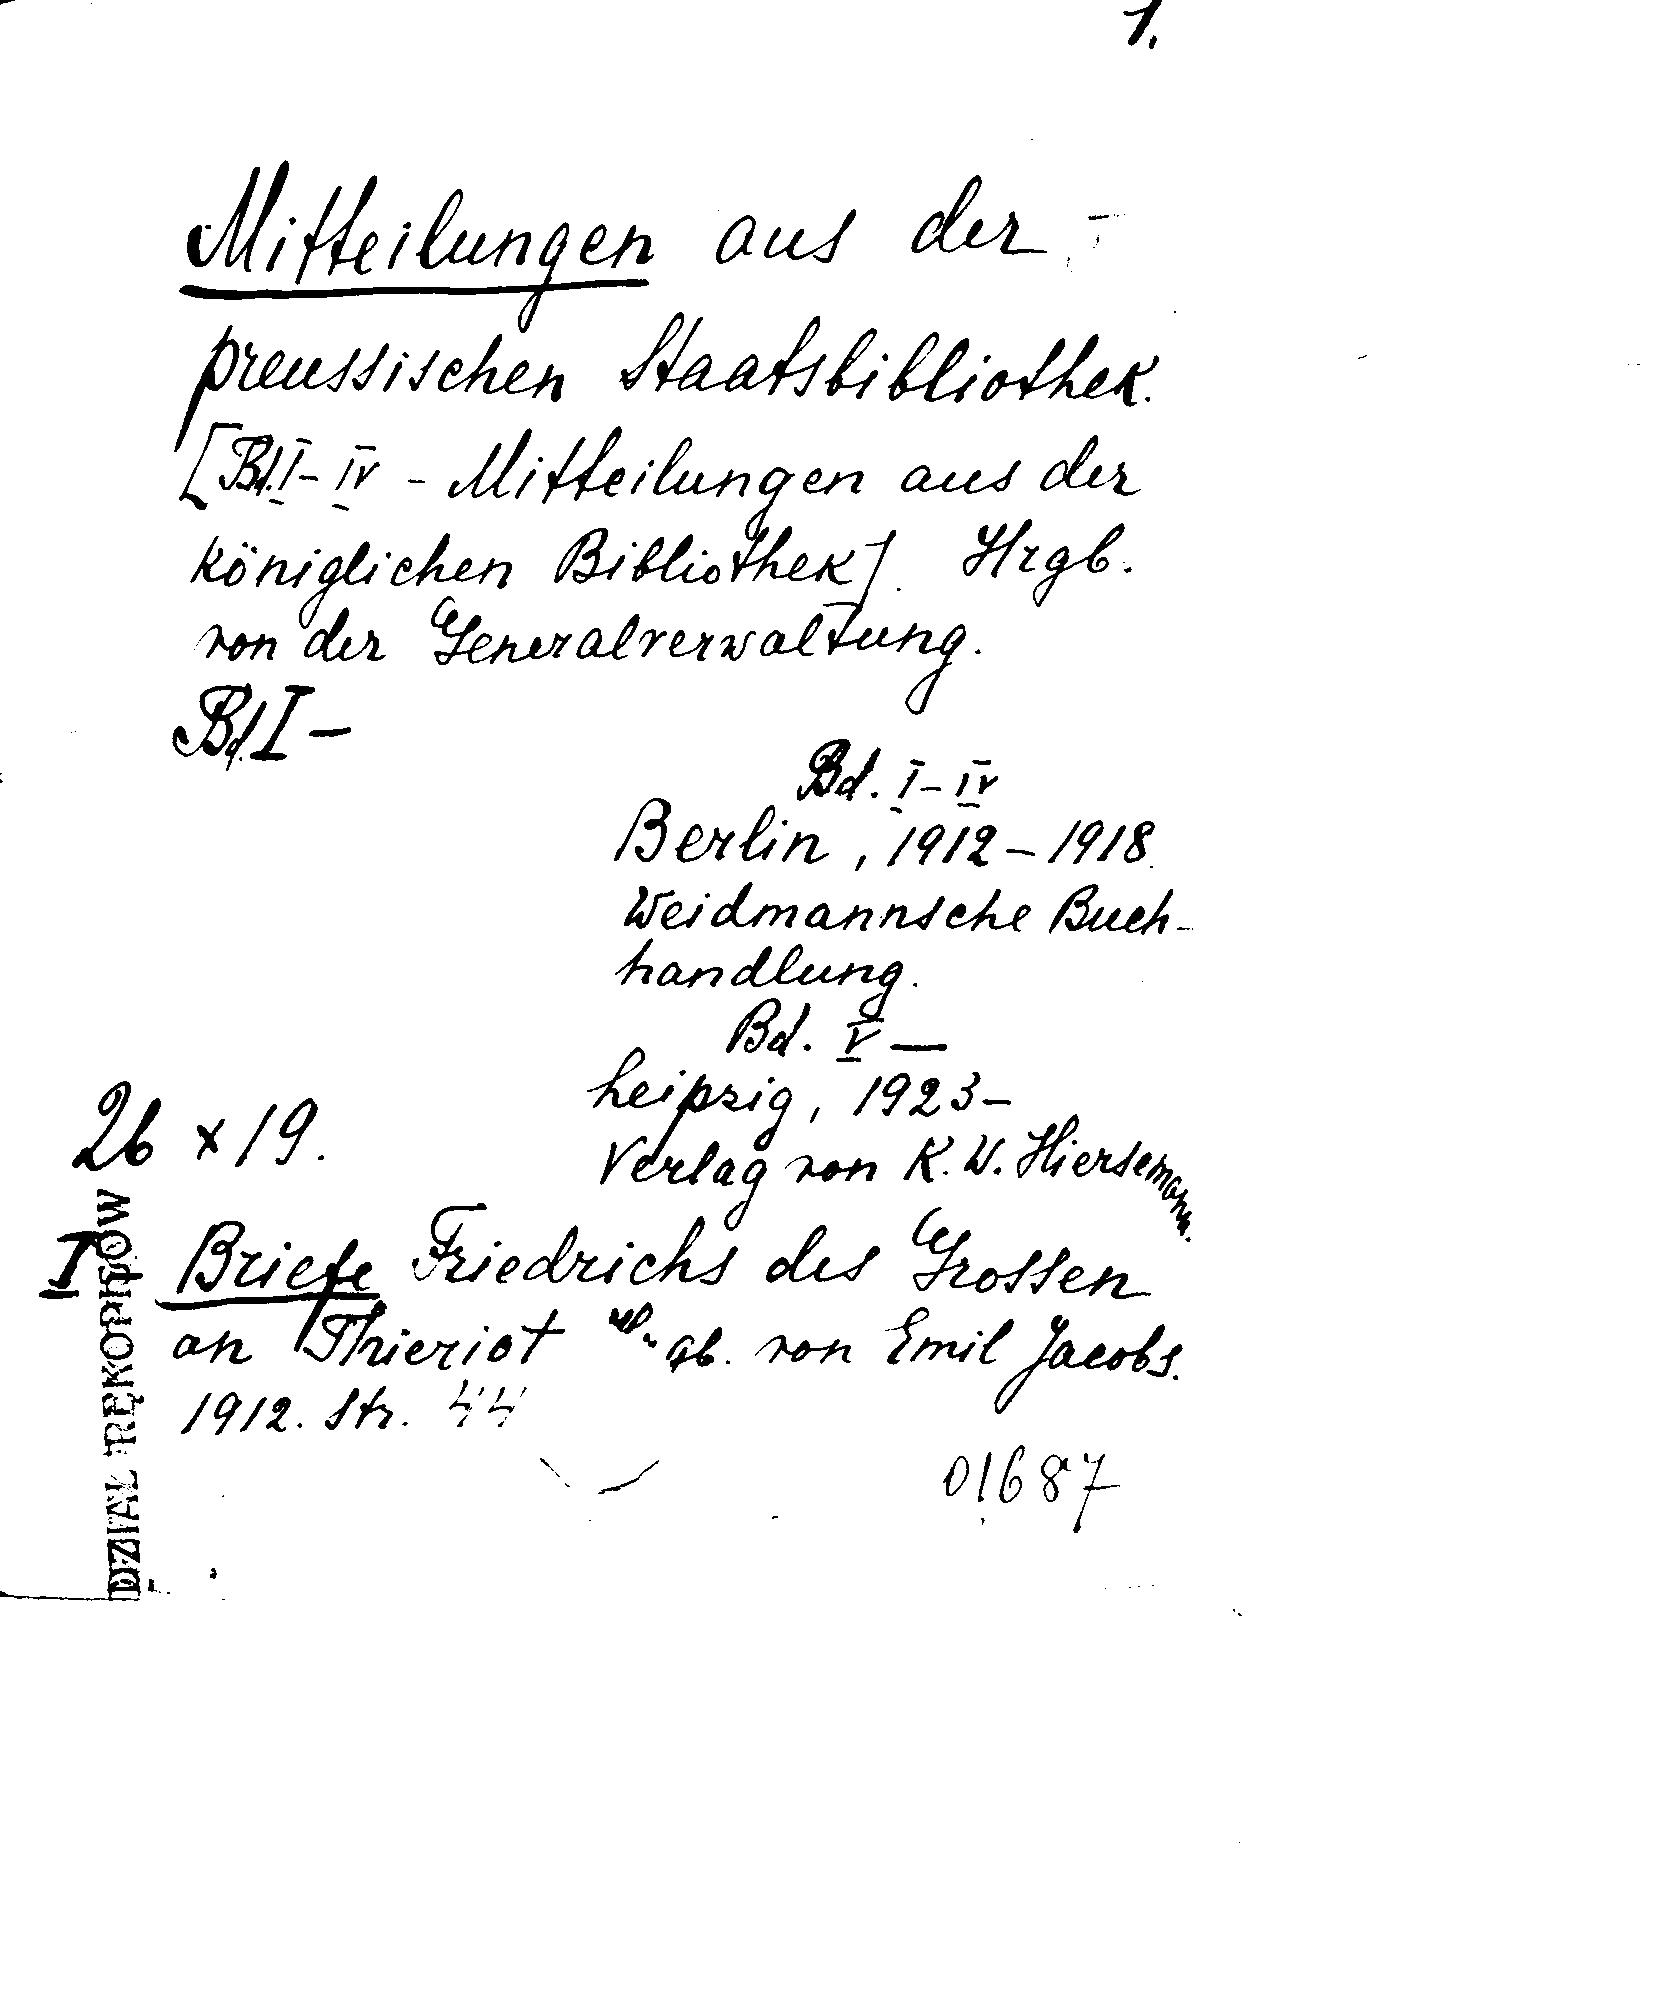 1.
Mitteilungen aus der
preussischen Staatsbibliothek.
[Bd. I-IV - Mitteilungen aus der
königlichen Bibliothek]. Hrgb.
von der Generalverwaltung.
Bd. I -
Bd. I-IV
Berlin, 1912-1918.
Weidmannsche Buch-
handlung.
Bd. V —
Leipzig, 1923-
26 x 19.
Verlag von K. W. Hiersemann.
I Briefe Friedrichs des Grossen
an Thieriot gb. von Emil Jacobs.
1912. Str. 44
01687
DZIAŁ RĘKOPISÓW